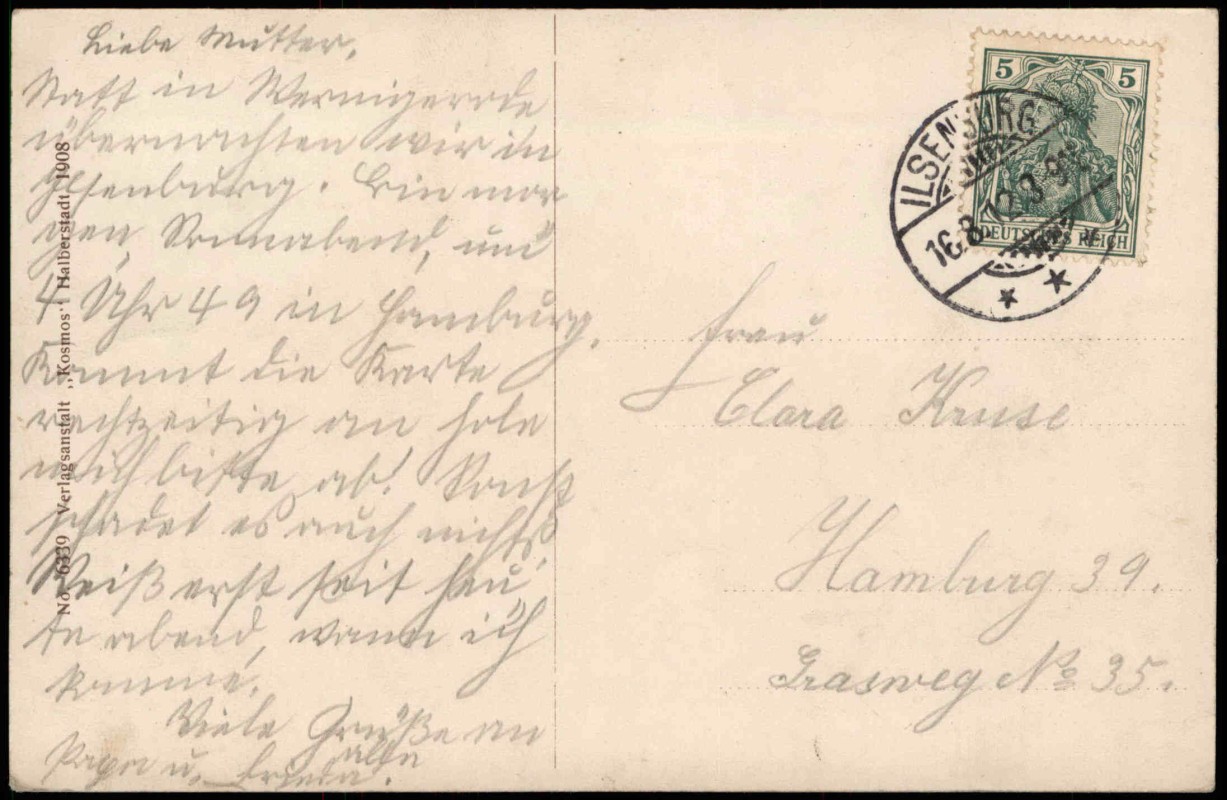 Liebe Mutter,
Statt in Wernigerode
übernachten wir in
Ilsenburg. Bin mor
gen, Sonnabend, um
4 Uhr 49 in Hamburg.
Kommt die Karte
rechtzeitig an hole
mich bitte ab! Sonst
schadet es auch nichts.
Weiß erst seit heu
te abend, wann ich
komme.
Viele Grüße an
alle
Papa u. Frieda.
No. 6339 Verlagsanstalt „Kosmos“ Halberstadt 1908
5 5
DEUTSCHES REICH
ILSENBURG
16.8.12.8-9
Frau
Clara Kruse
Hamburg 39.
Grasweg No 35.